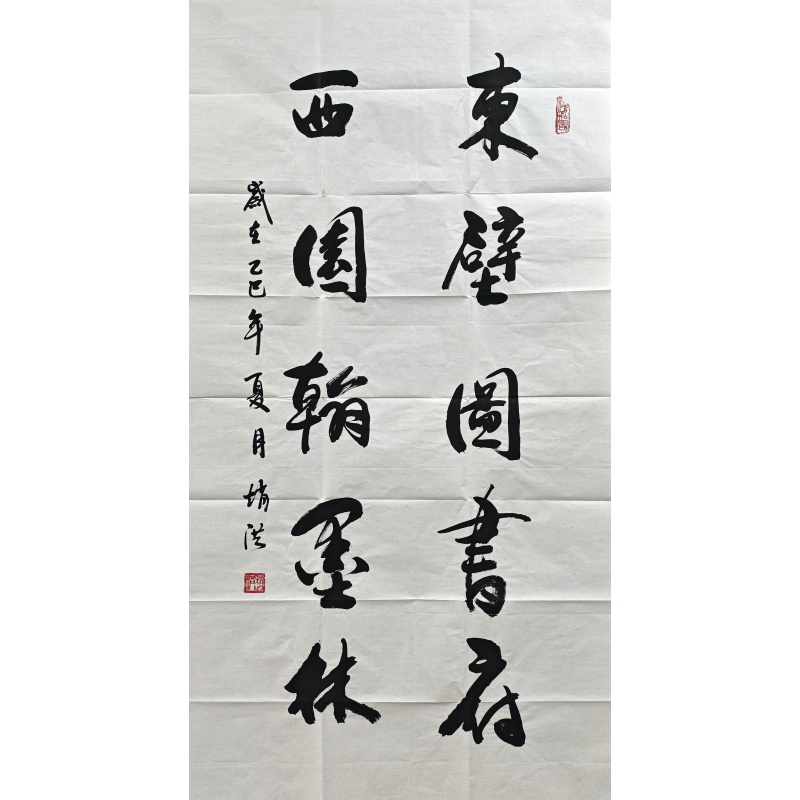 東壁圖書府
西園翰墨林
歲在乙巳年夏月趙洪